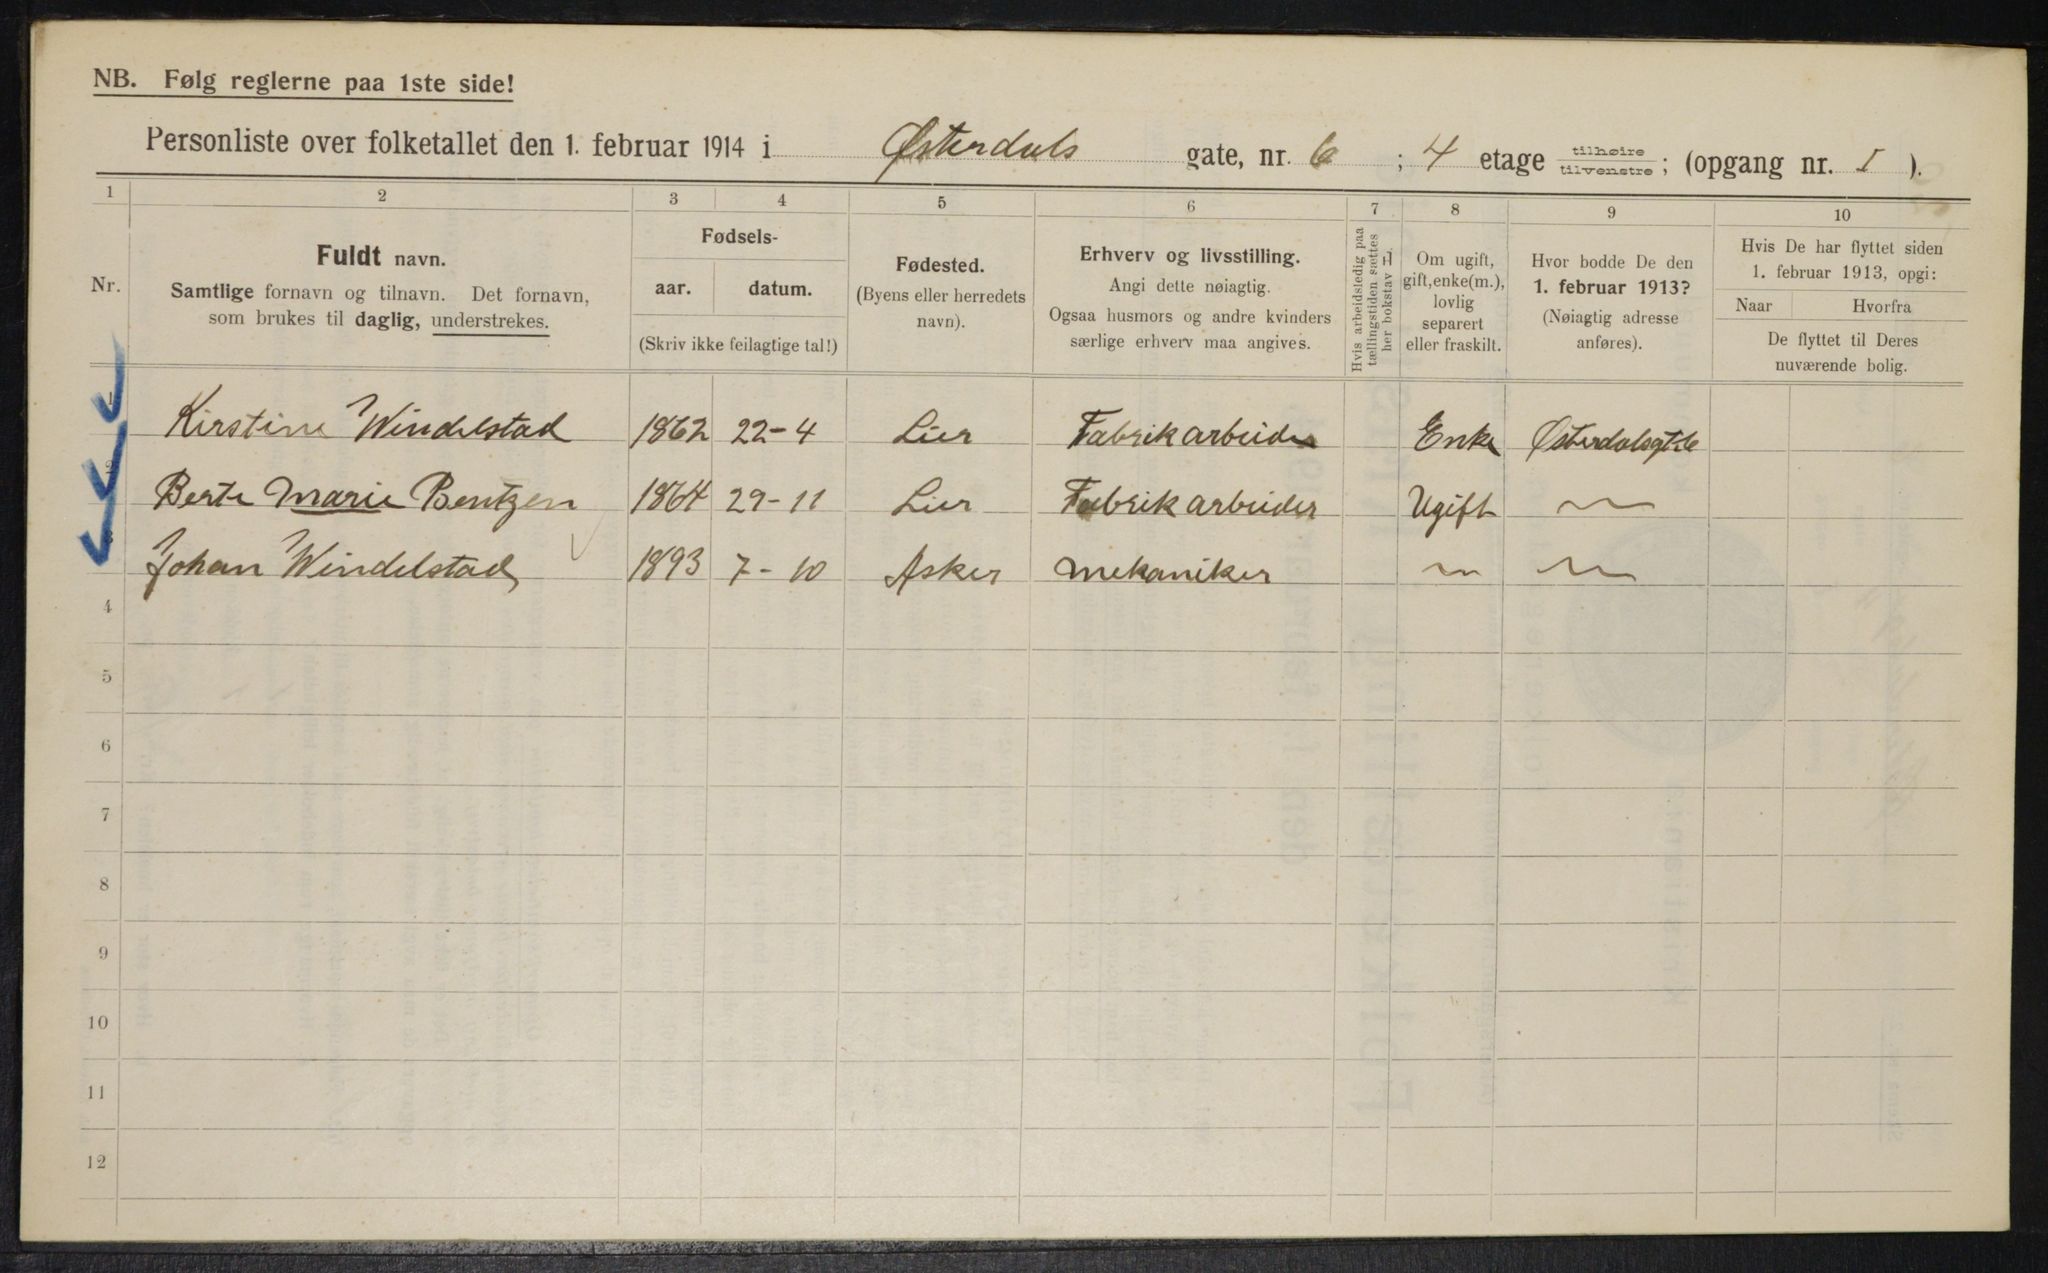 NB. Følg reglerne paa 1ste side!
Personliste over folketallet den 1. februar 1914 i Østerdals gate, nr. 6 ; 4 etage tilhøire tilvenstre; (opgang nr. I ).
1 2 3 4 5 6 7 8 9 10
Nr.
Fuldt navn.
Samtlige fornavn og tilnavn. Det fornavn,
som brukes til daglig, understrekes.
Fødsels-
aar. datum.
(Skriv ikke feilagtige tal!)
Fødested.
(Byens eller herredets
navn).
Erhverv og livsstilling.
Angi dette nøiagtig.
Ogsaa husmors og andre kvinders
særlige erhverv maa angives.
Hvis arbeidsledig paa
tællingstiden sættes
her bokstav L.
Om ugift,
gift, enke(m.),
lovlig
separert
eller fraskilt.
Hvor bodde De den
1. februar 1913?
(Nøiagtig adresse
anføres).
Hvis De har flyttet siden
1. februar 1913, opgi:
Naar Hvorfra
De flyttet til Deres
nuværende bolig.
1 Kirstine Windelstad 1862 22-4 Lier Fabrikarbeider Enke Østerdalsgt 6
2 Berte Marie Bentzen 1864 29-11 Lier Fabrikarbeider Ugift
3 Johan Windelstad 1893 7-10 Asker Mekaniker
4
5
6
7
8
9
10
11
12